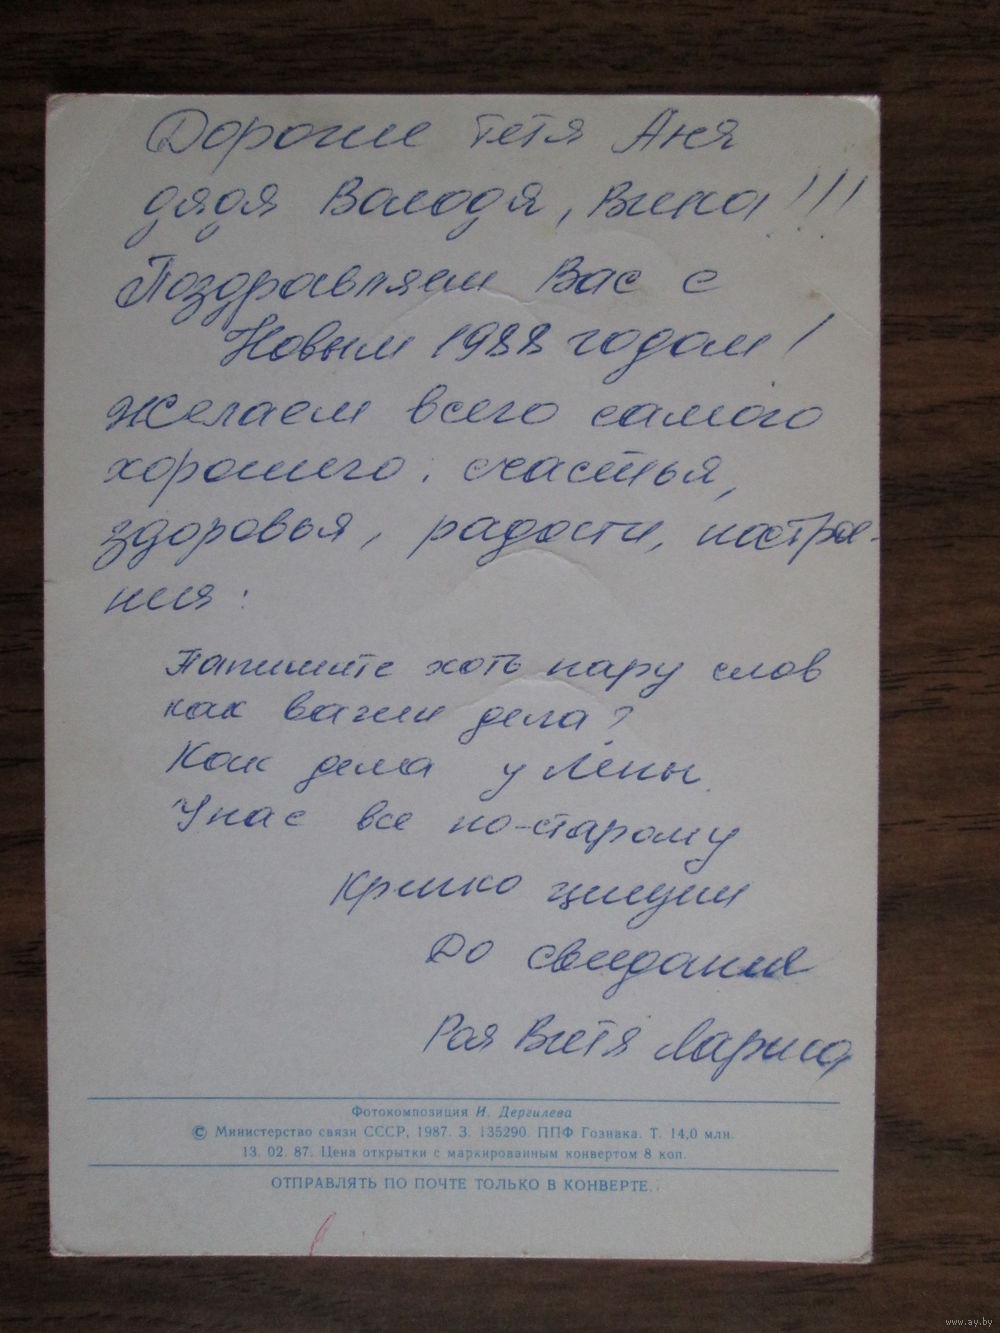 Дорогие тетя Аня
дядя Володя, Вина!!!
Поздравляем Вас с
Новым 1988 годом!
Желаем всего самого
хорошего: счастья,
здоровья, радости, настрое-
ния:
Напишите хоть пару слов
как ваши дела?
Как дела у Лены.
У нас все по-старому
Крепко целуем
До свидания
Рая Витя Лариса
Фотокомпозиция И. Дергилева
© Министерство связи СССР, 1987. З. 135290. ППФ Гознака. Т. 14,0 млн.
13. 02. 87. Цена открытки с маркированным конвертом 8 коп.
ОТПРАВЛЯТЬ ПО ПОЧТЕ ТОЛЬКО В КОНВЕРТЕ.
www.ay.by